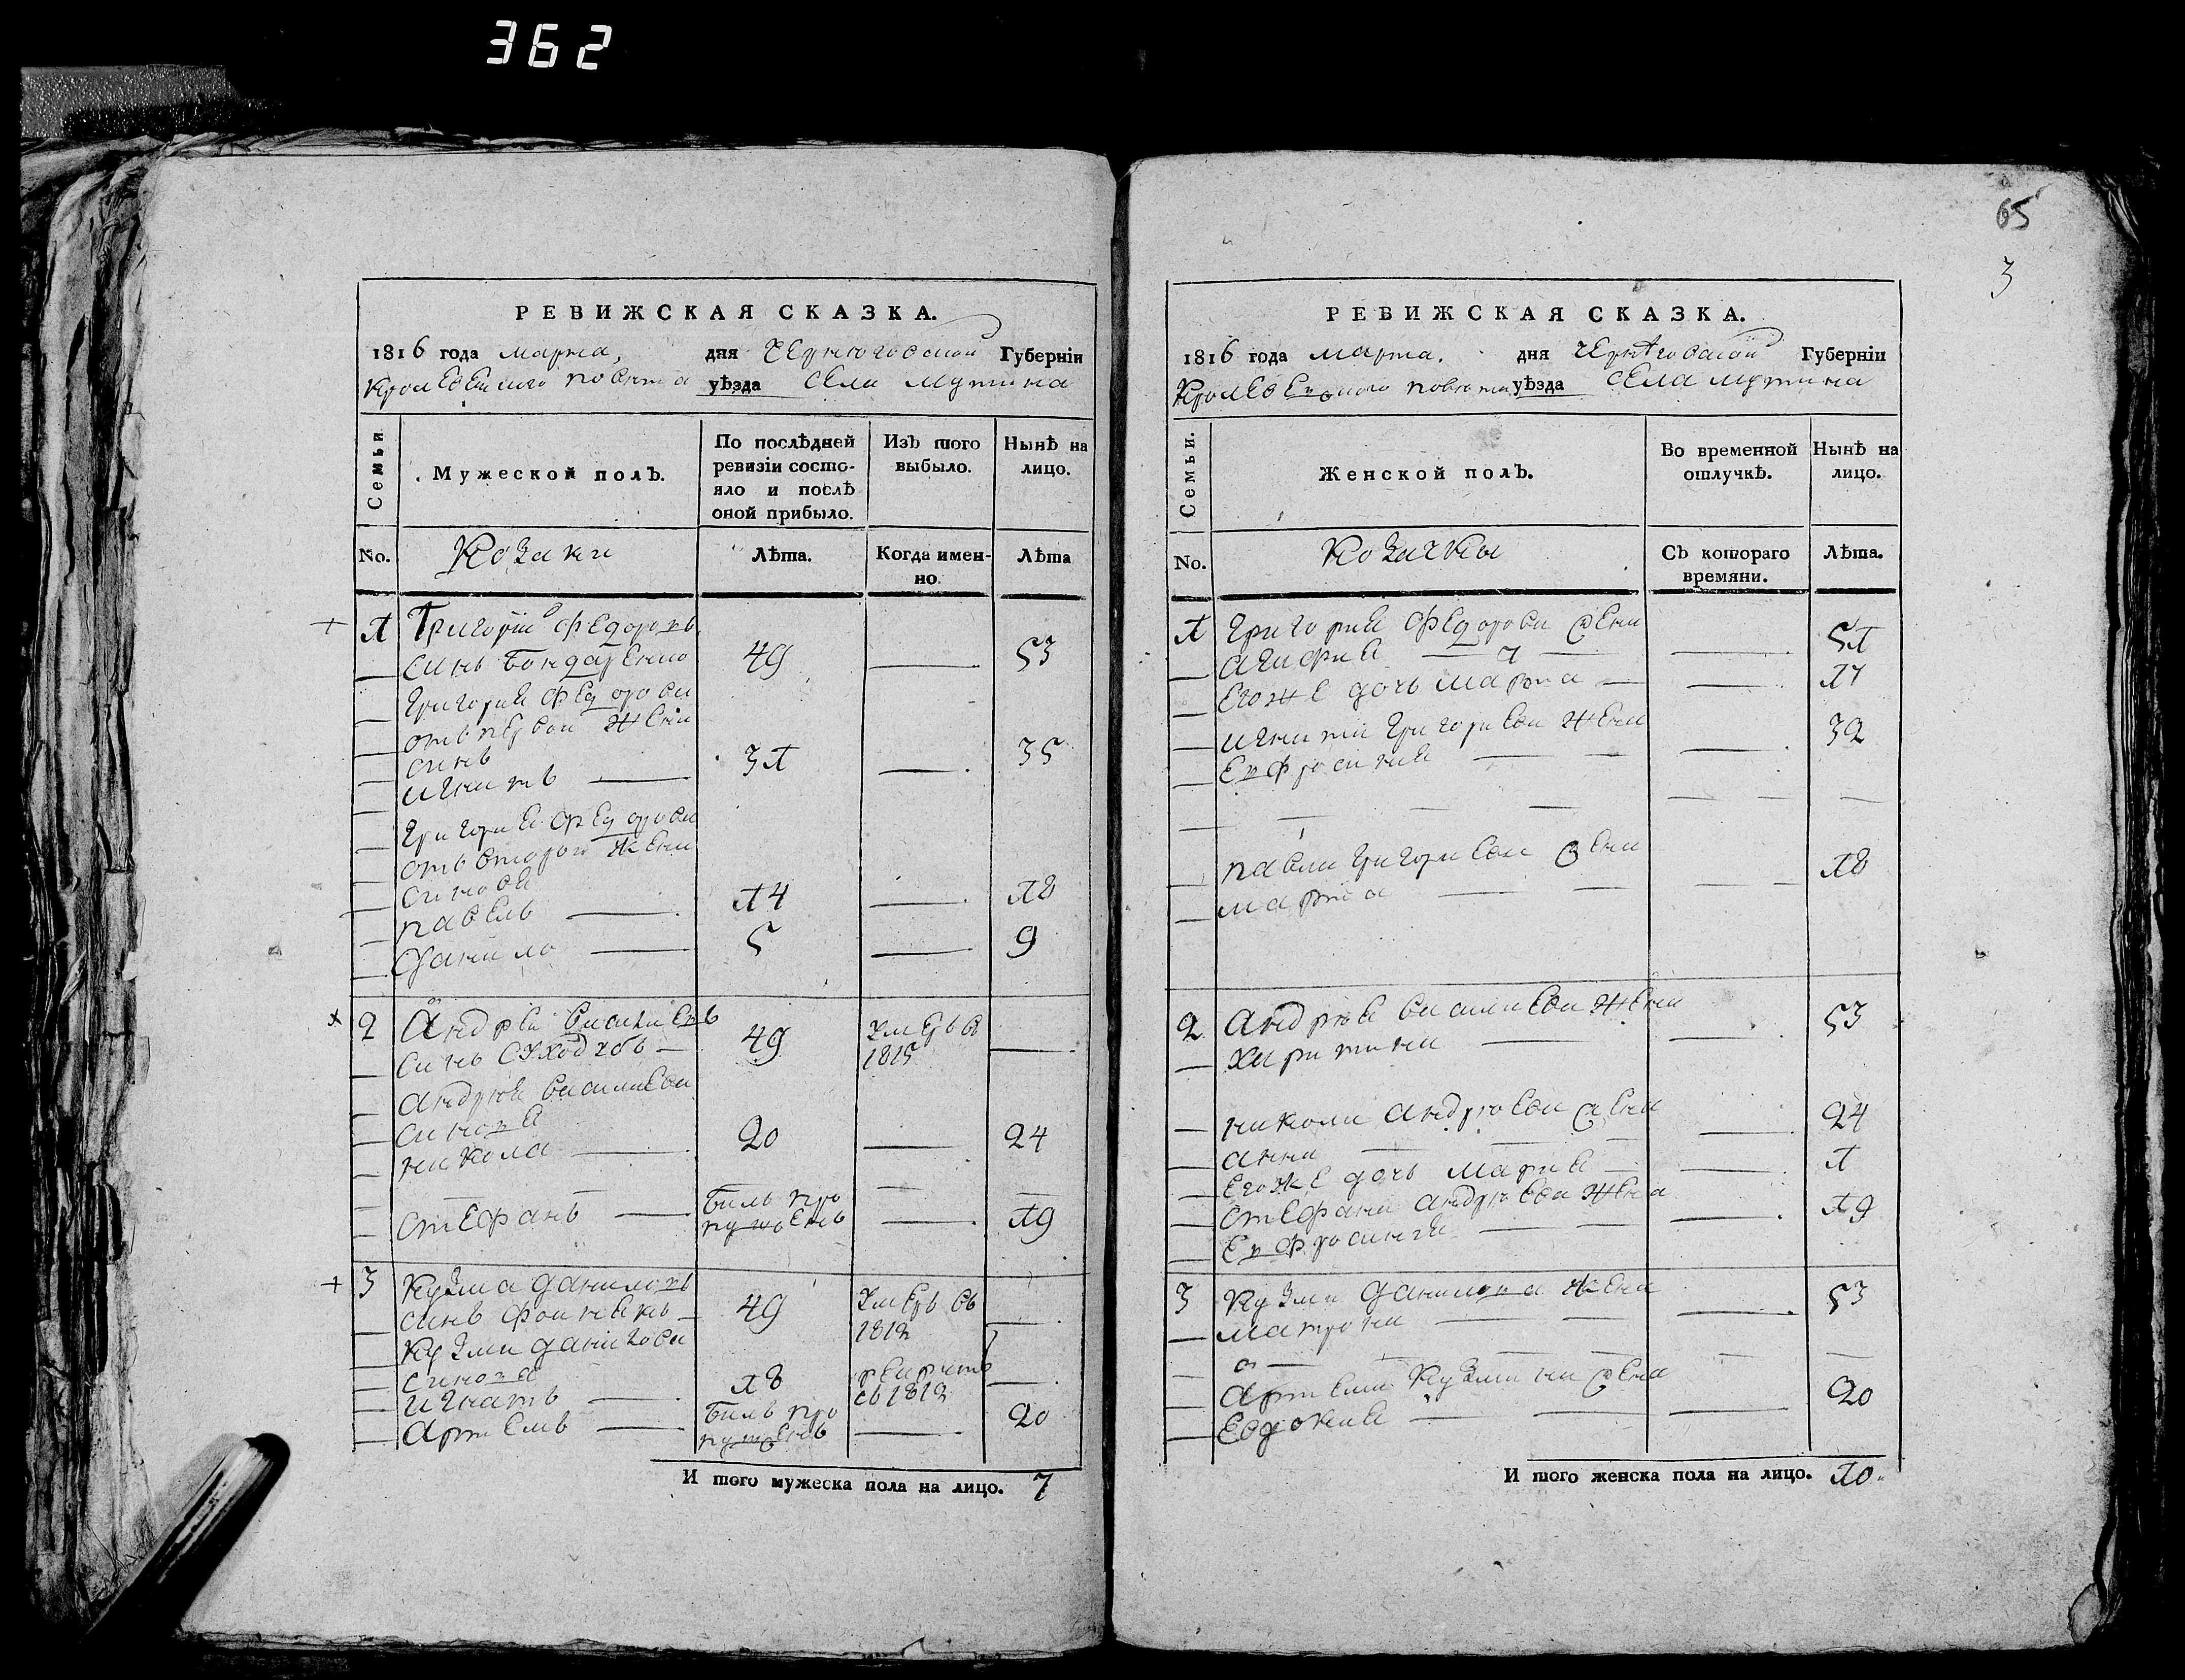 362
65
3
РЕВИЖСКАЯ СКАЗКА.
1816 года марта, дня Черниговской Губерніи
Кролевецкого повета уѣзда села Мутина
Семьи
Мужеской полъ.
По послѣдней ревизіи состояло и послѣ оной прибыло.
Изъ того выбыло.
Нынѣ на лицо.
No.
Козаки
Лѣта.
Когда именно.
Лѣта
1 Григорій Федоровъ
синъ Бондаренко 49 — 53
Григория Федорова
отъ первой жени
синъ
игнатъ — 31 — 35
Григория Федорова
отъ второй жени
синовя
павелъ — 14 — 18
Данило — 5 — 9
2 Андрей Василиевъ
синъ 49 умеръ в 1815 —
Андрея Василиева
синовя
никола — 20 — 24
стефанъ — билъ пропущенъ — 19
3 Кузма Даниловъ
синъ 49 умеръ въ 1812 —
Кузми Данилова
синовя
игнатъ — 18 въ 1812 —
Артемъ — билъ пропущенъ — 20
И того мужеска пола на лицо. 7
РЕВИЖСКАЯ СКАЗКА.
1816 года марта. дня Черниговской Губерніи
Кролевецкого повета уѣзда села Мутина
Семьи.
Женской полъ.
Во временной отлучкѣ.
Нынѣ на лицо.
No.
Козачки
Съ котораго времяни.
Лѣта.
1 Григория Федорова жена
агафия — — 51
Егоже дочь марфа — — 17
игната Григориева жена
Евфросиния — — 32
павла Григориева жена
марфа — — 18
2 Андрея Василиева жена
харитина — — 53
николи Андреева жена
анна — — 24
Егоже дочь мария — — 1
стефана Андреева жена
Евфросиния — — 19
3 Кузми Данилова жена
матрона — — 53
Артема Кузмина жена
Евдокия — — 20
И того женска пола на лицо. 10.